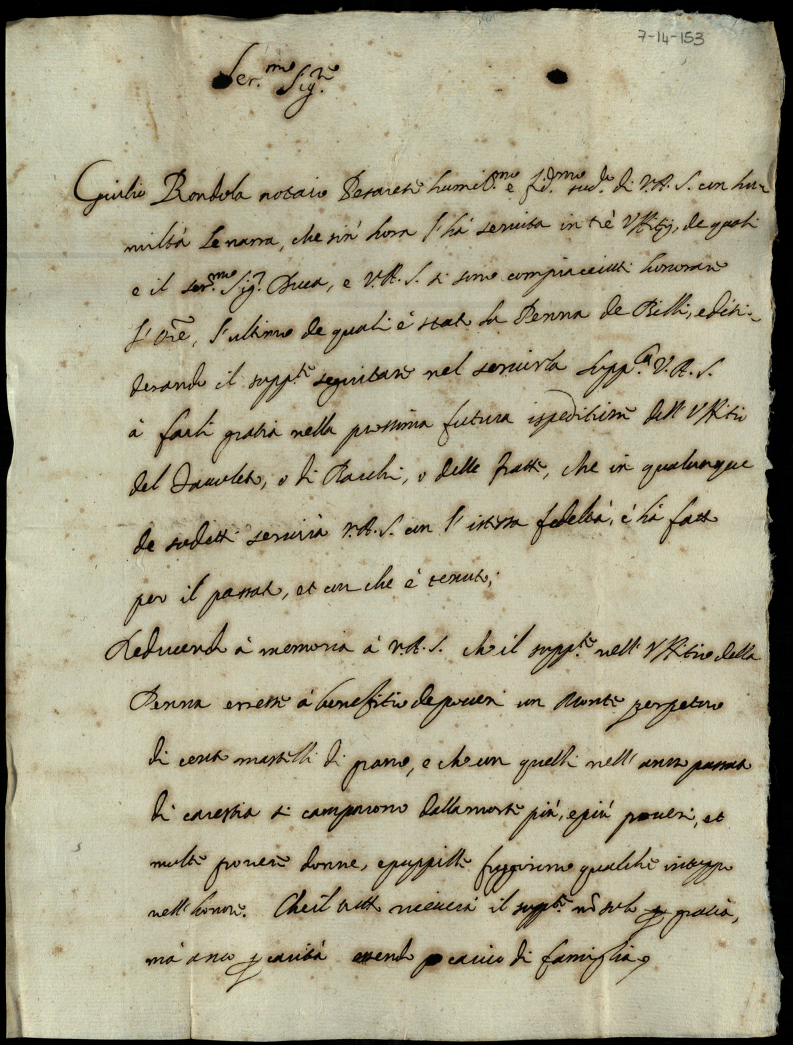 7-14-153
Ser.mo Sig.re
Giulio Rondola notaio Pesarese humil.mo e fid.mo sud.o di V.A.S. con hu-
miltà le narra, che sin' hora l'hà servita in trè Uffitij, de quali
e il ser.mo Sig.r Duca, e V.A.S. si sono compiaciuti honorare
l'Ore, l'ultimo de quali è stato la Penna de Billi, e desi-
derando il supp.te seguitare nel servirla supp.ca V.A.S.
à farli gratia nella prossima futura ispeditione dell'Uffitio
del Tavoleto, o di Racchi, o delle fratte, che in qualunque
de sudetti servirà V.A.S. con l'istessa fedeltà, c'hà fatto
per il passato, et con che è tenuto;
Reducendo à memoria à V.A.S. che il supp.te nell'Uffitio della
Penna eresse à benefitio de poveri un Monte perpetuo
di cento mastelli di grano, e che con quelli nell'anno passato
di carestia si camparono dalla morte più, e più poveri, et
molte povere donne, e puppille fuggirono qualche intoppo
nell'honore. Che il tutto riceverà il supp.te nõ solo p gratia,
mà anco p carità essendo carico di famiglia